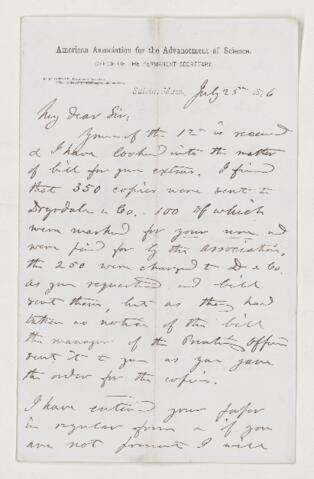 American Association for the Advancement of Science.
OFFICE OF THE PERMANENT SECRETARY.
Salem, Mass. July 25th 1876
My dear Sir,
Yours of the 12th is received
& I have looked into the matter
of bill for your extras. I find
that 350 copies were sent to
Drysdale & Co. 100 of which
were marked for your use and
were paid for by the Association,
the 250 were charged to D & Co.
as you requested and bill
sent them, but as they had
taken no notice of the bill
the manager of the Printing Office
sent it to you as you gave
the order for the copies.
I have entered your paper
in regular form & if you
are not present I will